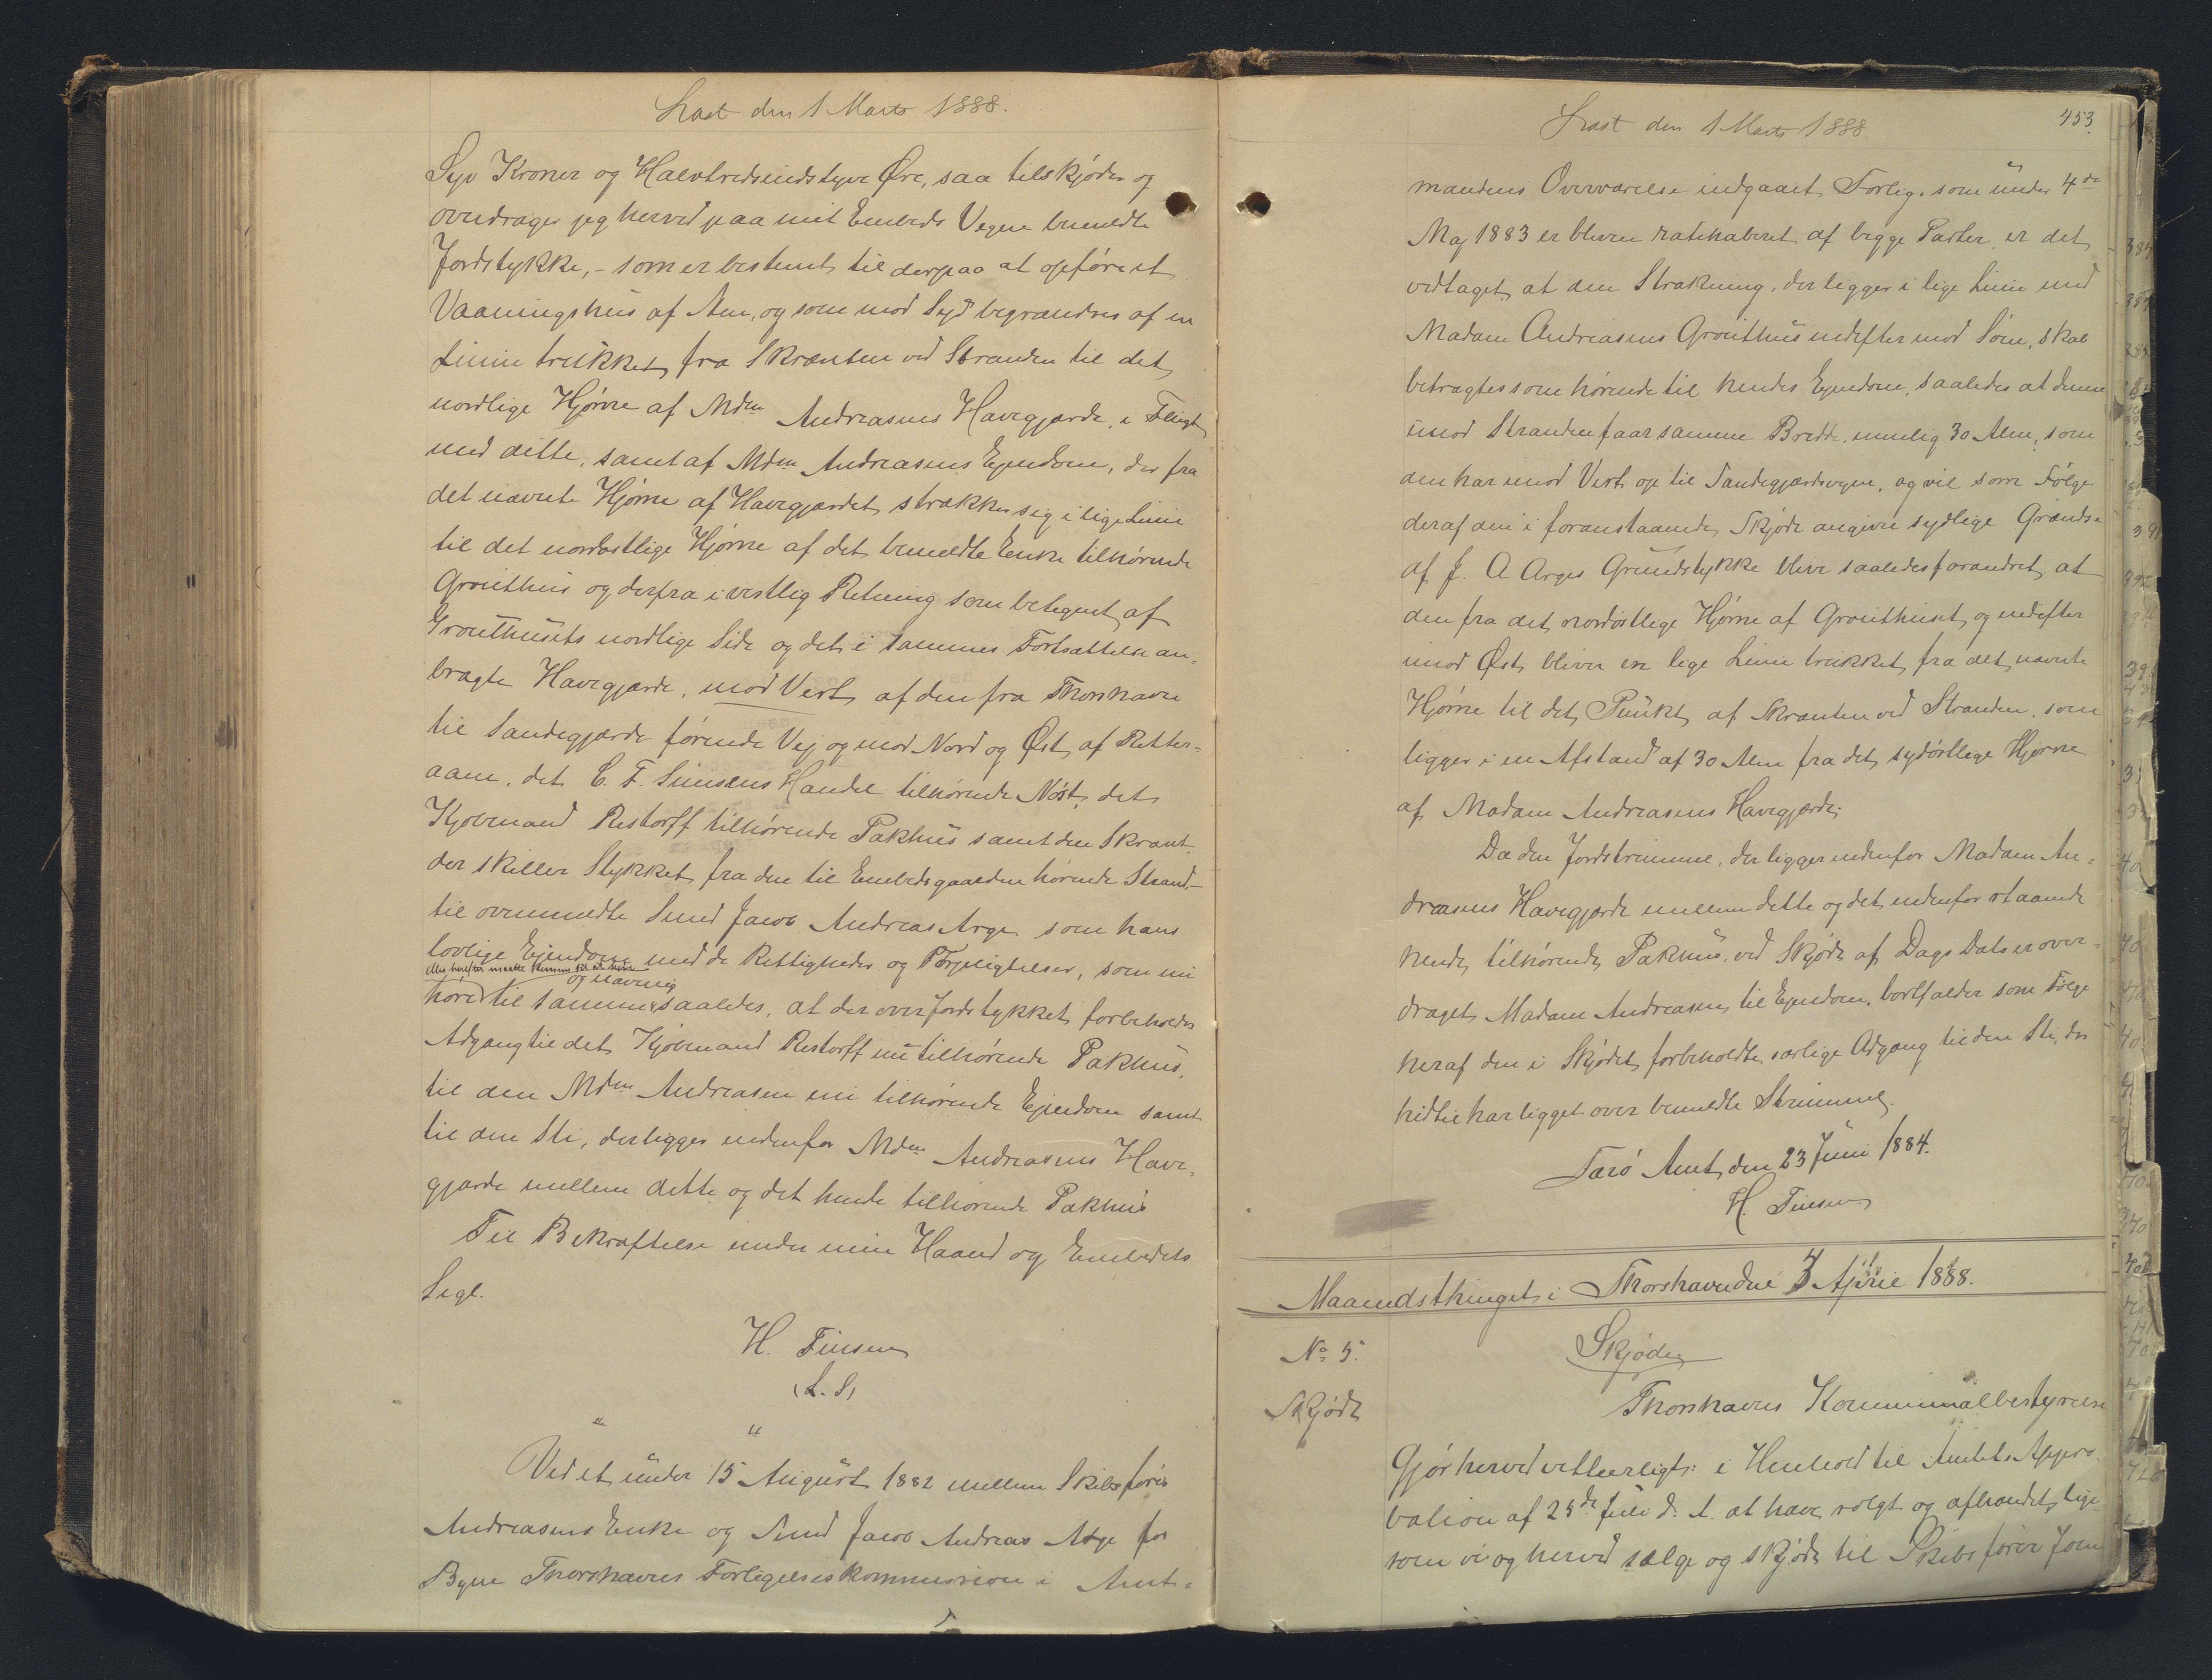 Læst den 1 Marts 1888.
Syv Kroner og Halvtredsindstyve Øre, saa tilskjøder og
overdrager jeg herved paa mit Embeds Vegne bemeldte
Jordstykke, – som er bestemt til derpaa at opføre et
Vaaningshus af Sten, og som mod Syd begrændses af en
Linie trukket fra Skrænten ved Stranden til det
nordlige Hjørne af Mdm Andreasens Havegjærde, i Flugt
med dette, samt af Mdm Andreasens Ejendom, der fra
det nævnte Hjørne af Havegjærdet strækker sig i lige Linie
til det nordostlige Hjørne af det bemeldte Enke tilhørende
Grouthus og derfra i vestlig Retning som betegnet af
Grouthusets nordlige Side og det i sammes Fortsættelse an-
bragte Havegjærde, mod Vest af den fra Thorshavn
til Sandegjærde førende Vej og mod Nord og Øst af Retter-
aaen, det C. F. Siemsens Handel tilhørende Nøst, det
Kjøbmand Restorff tilhørende Pakhus samt den Skrænt
der skiller Stykket fra den til Embedsgaarden hørende Strand –
til ovenmeldte Smed Jacob Andreas Arge som hans
lovlige Ejendom med de Rettigheder og Forpligtelser, som nu
eller herefter maatte komme til at høre
og navnlig
høre til samme, saaledes, at der over Jordstykket forbeholdes
Adgang til det Kjøbmand Restorff nu tilhørende Pakhus,
til den Mdm Andreasen nu tilhørende Ejendom samt
til den Sti, der ligger nedenfor Mdm Andreasens Have-
gjærde mellem dette og det hende tilhørende Pakhus
Til Bekræftelse under min Haand og Embedets
Segl.
H. Finsen
(L. S)
" "
Ved et under 15 August 1882 mellem Skibsfører
Andreasens Enke og Smed Jacob Andreas Arge for
Byen Thorshavns Forligelseskommission i Amt-
Læst den 1 Marts 1888
453.
mandens Overværelse indgaaet Forlig, som under 4de
Maj 1883 er bleven ratihaberet af begge Parter er det
vedtaget, at den Strækning, der ligger i lige Linie med
Madam Andreasens Grouthus nedefter mod Søen, skal
betragtes som hørende til hendes Ejendom, saaledes at denne
imod Stranden faar samme Bredde, nemlig 30 Alen, som
den har imod Vest op til Sandegjærdsvejen, og vil som Følge
deraf den i foranstaaende Skjøde angivne sydlige Grændse
af J. A Arges Grundstykke blive saaledes forandret, at
den fra det nordostlige Hjørne af Grouthuset og nedefter
imod Øst, bliver en lige Linie trukket fra det nævnte
Hjørne til det Punkt af Skrænten ved Stranden, som
ligger i en Afstand af 30 Alen fra det sydøstlige Hjørne
af Madam Andreasens Havegjærde;
Da den Jordstrimmel, der ligger nedenfor Madam An-
dreasens Havegjærde mellem dette og det nedenfor staaende
hende tilhørende Pakhus, ved Skjøde af Dags Dato er over-
draget Madam Andreasen til Ejendom, bortfalder som Følge
heraf den i Skjødet forbeholdte særlige Adgang til den Sti, der
hidtil har ligget over bemeldte Strimmel.
Færø Amt, den 23 Juni 1884.
H. Finsen
Maanedsthinget i Thorshavn den 3 April 1888.
No 5. Skjøde
Skjøde Thorshavns Kommunalbestyrelse
Gjør hervid vitterligt: i Henhold til Amtets Appro-
bation af 25de Juli d. A. at have solgt og afhændet, lige-
som vi og herved sælge og skjøde til Skibsfører Joen